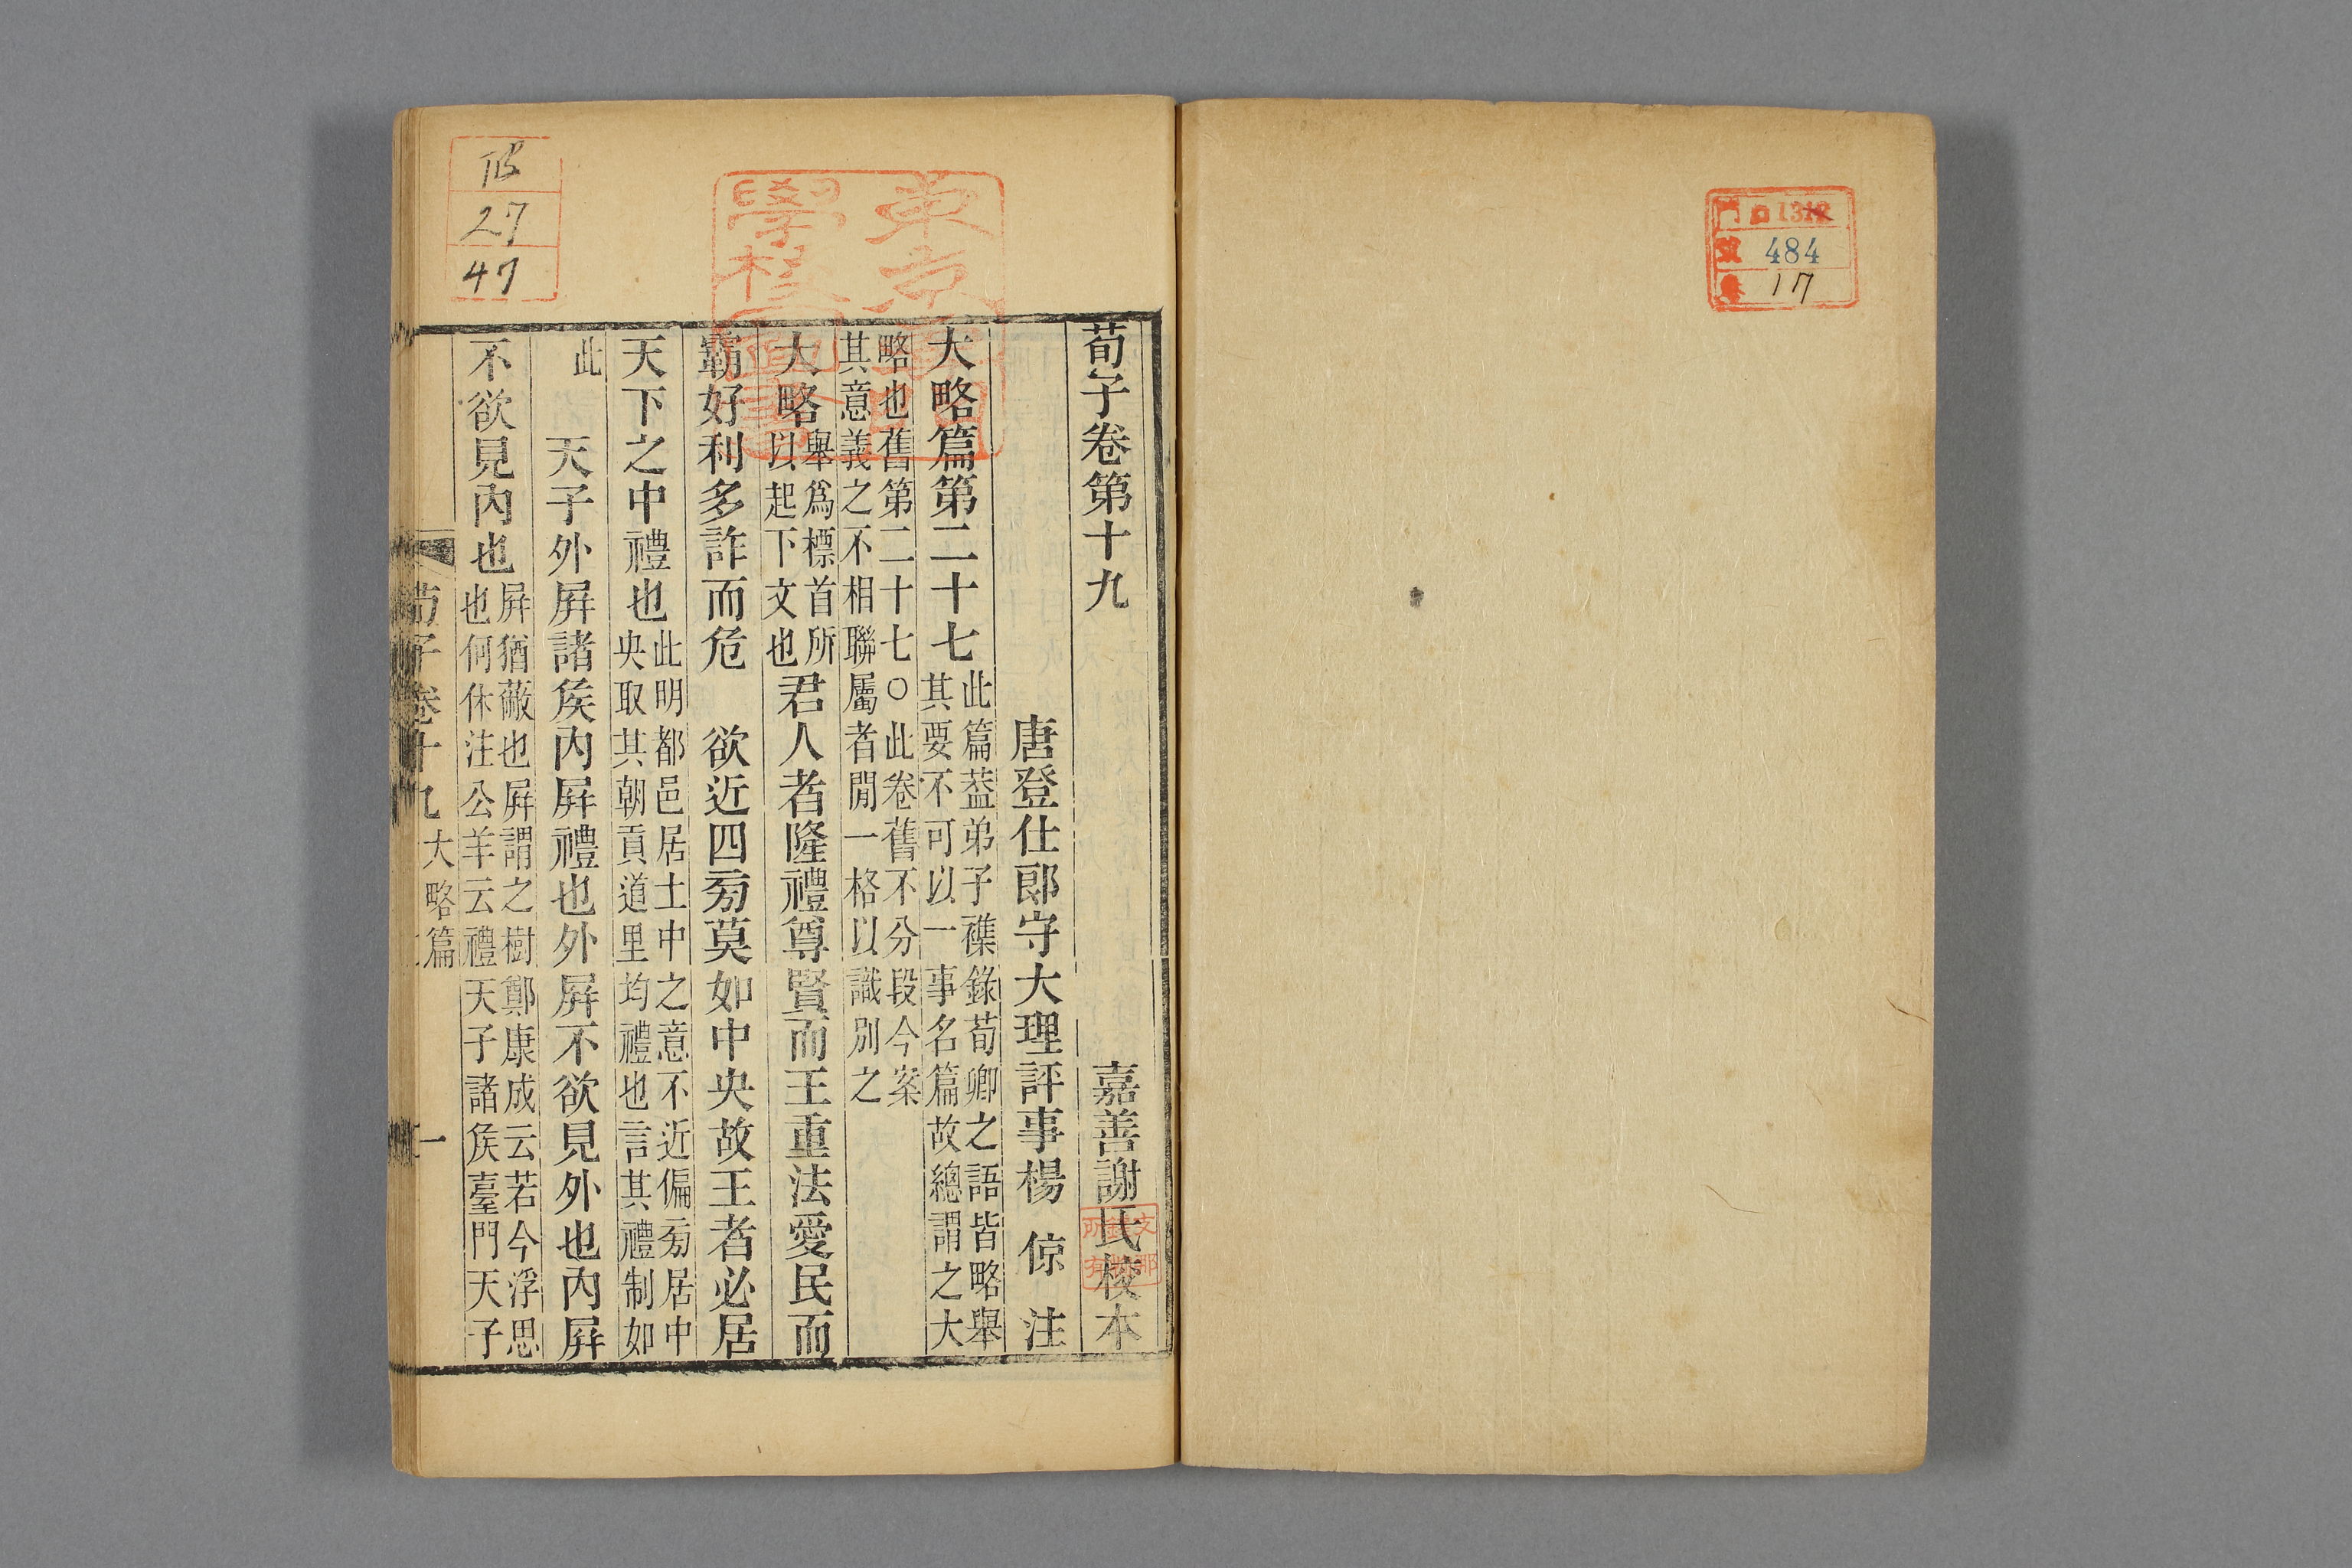 門 1312
號 484
17
荀子卷第十九 嘉善謝氏校本
唐登仕郎守大理評事楊 倞 注
大略篇第二十七
此篇葢弟子襍錄荀卿之語皆略舉
其要不可以一事名篇故總謂之大
略也舊第二十七○此卷舊不分段今案
其意義之不相聯屬者閒一格以識別之
大略
舉爲標首所
以起下文也
君人者隆禮尊賢而王重法愛民而
霸好利多詐而危 欲近四旁莫如中央故王者必居
天下之中禮也
此明都邑居土中之意不近偏旁居中
央取其朝貢道里均禮也言其禮制如
此
天子外屛諸矦內屛禮也外屛不欲見外也內屛
不欲見內也
屛猶蔽也屛謂之樹鄭康成云若今浮思
也何休注公羊云禮天子諸矦臺門天子
荀子卷十九 大略篇 一
27
47
東京
學校
圖書